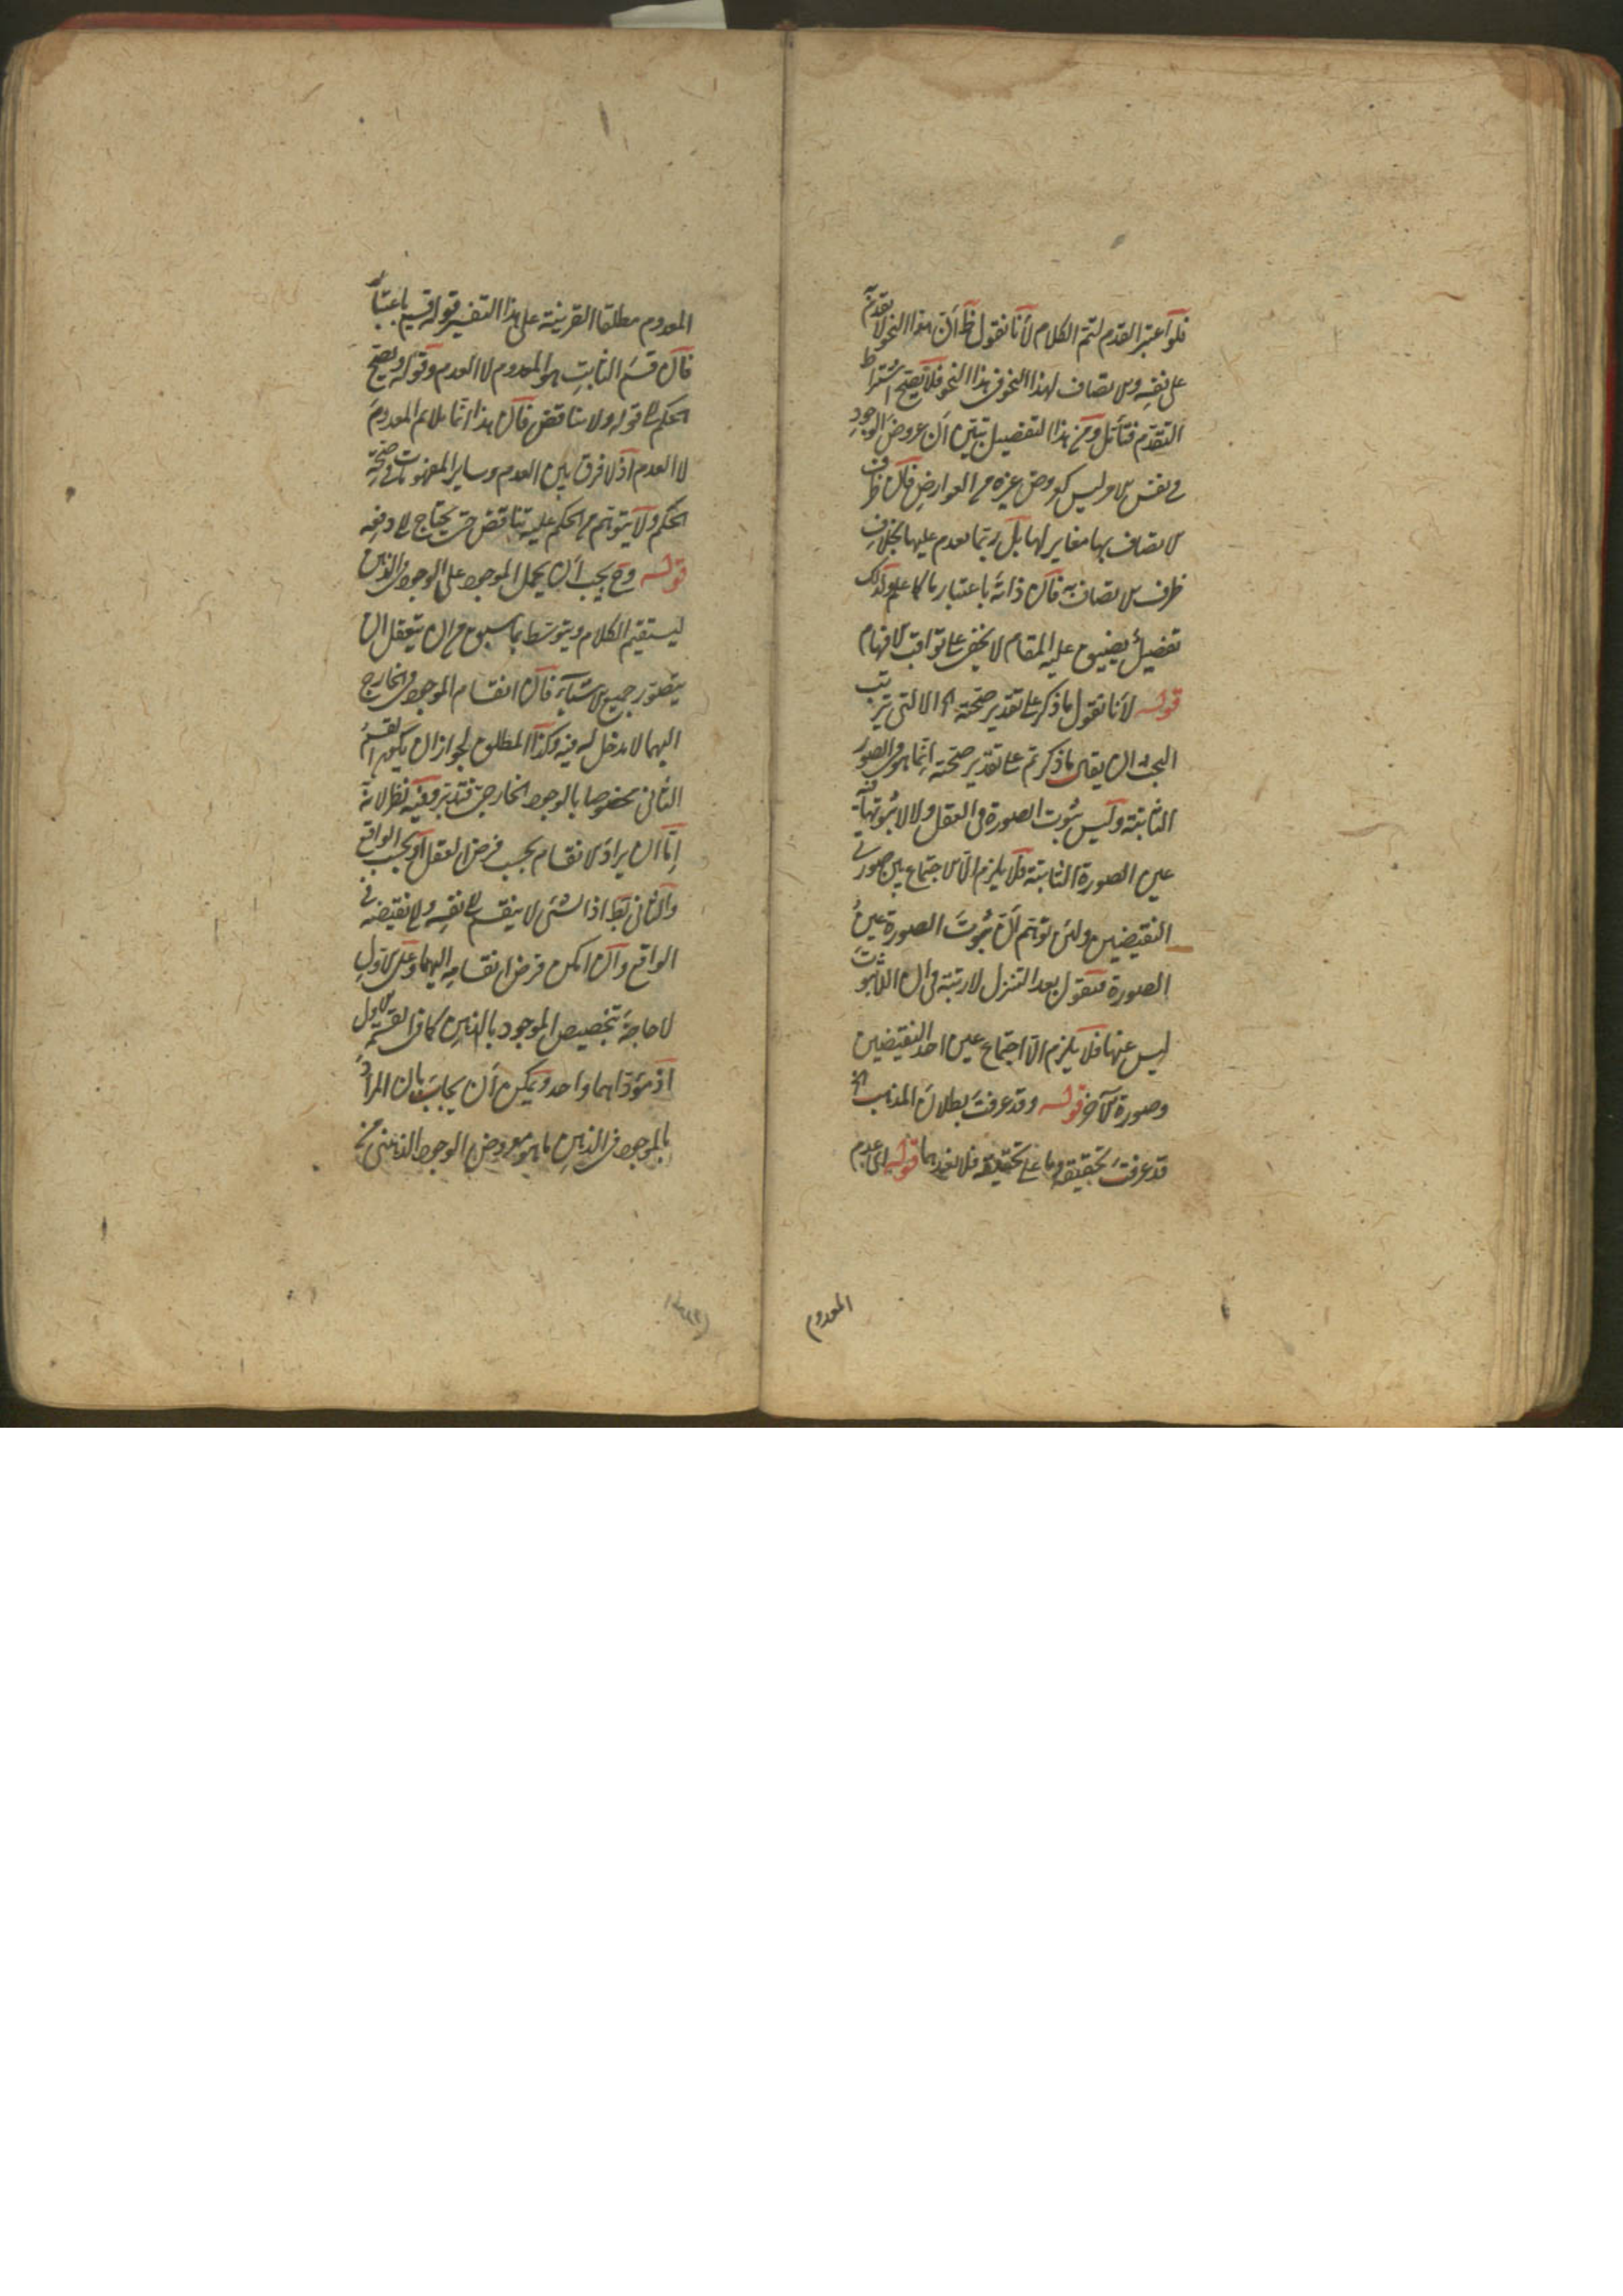 فلو اعتبر القدم لتم الكلام لأنا نقول ظ أن هذا النحو لا تقدم له
على نفسه والاتصاف لهذا النحو في هذا النحو فلا يصح اشتراط
التقدم فتأمل ومن هذا التفصيل تبين أن عروض الوجود
في نفس الامر ليس كعروض غيره من العوارض فان ظرف
الاتصاف بها مغاير لها بل ربما تقدم عليها بخلاف
ظرف الاتصاف به فان ذاته باعتبار ما كما علم ولذلك
تفصيل يضيق عليه المقام لا يخفى على ثواقب الافهام
قوله لأنا نقول ما ذكر على تقدير صحته اه الالتى يترتب
البحث ان يقال ما ذكرتم على تقدير صحته إنما هو في الصور
الثابتة وليس ثبوت الصورة في العقل ولا لا ثبوتها فيه
عين الصورة الثابتة فلا يلزم الا الاجتماع بين صورتي
النقيضين ولئن توهم أن ثبوت الصورة عين
الصورة فنقول بعد التنزل لا ريبة في ان اللاثبوت
ليس عينها فلا يلزم الا اجتماع عين احد النقيضين
وصورة الآخر قوله وقد عرفت بطلان المذهب اه
قد عرفت تحقيقه وما على تحقيقه فلا نعيدهما قوله اى عدم
المعدوم
المعدوم مطلقا القرينة على هذا التفسير قوله قسيم باعتبار
فان قسم الثابت هو المعدوم لا العدم وقوله ويصح
الحكم الى قوله ولا تناقض فان هذا انما يلائم المعدوم
لا العدم اذ لا فرق بين العدم وساير المفهومات في صحة
الحكم ولا يتوهم من الحكم عليه تناقض حتى يحتاج الى دفعه
قوله وح يجب أن يحمل الموجود على الموجود الذهني
ليستقيم الكلام ويتوسط بما سبق من ان يتعقل ان
يتصور جميع الاشياء فان انقسام الموجود في الخارج
اليهما لا مدخل له فيه وكذا المطلق لجواز ان يكون القسم
الثاني مخصوصا بالوجود الخارجي فتدبر وفيه نظر لانه
إما ان يراد الانقسام بحسب فرض العقل أو بحسب الواقع
والثاني بط اذ الشئ لا ينقسم الى نفسه والى نقيضه في
الواقع وان امكن فرض انقسامه اليهما وعلى الاول
لا حاجة بتخصيص الموجود بالذهني كما في القسم الاول
اذ مؤداهما واحد ويمكن أن يجاب بان المراد
بالموجود في الذهن ما هو معروض الوجود الذهني